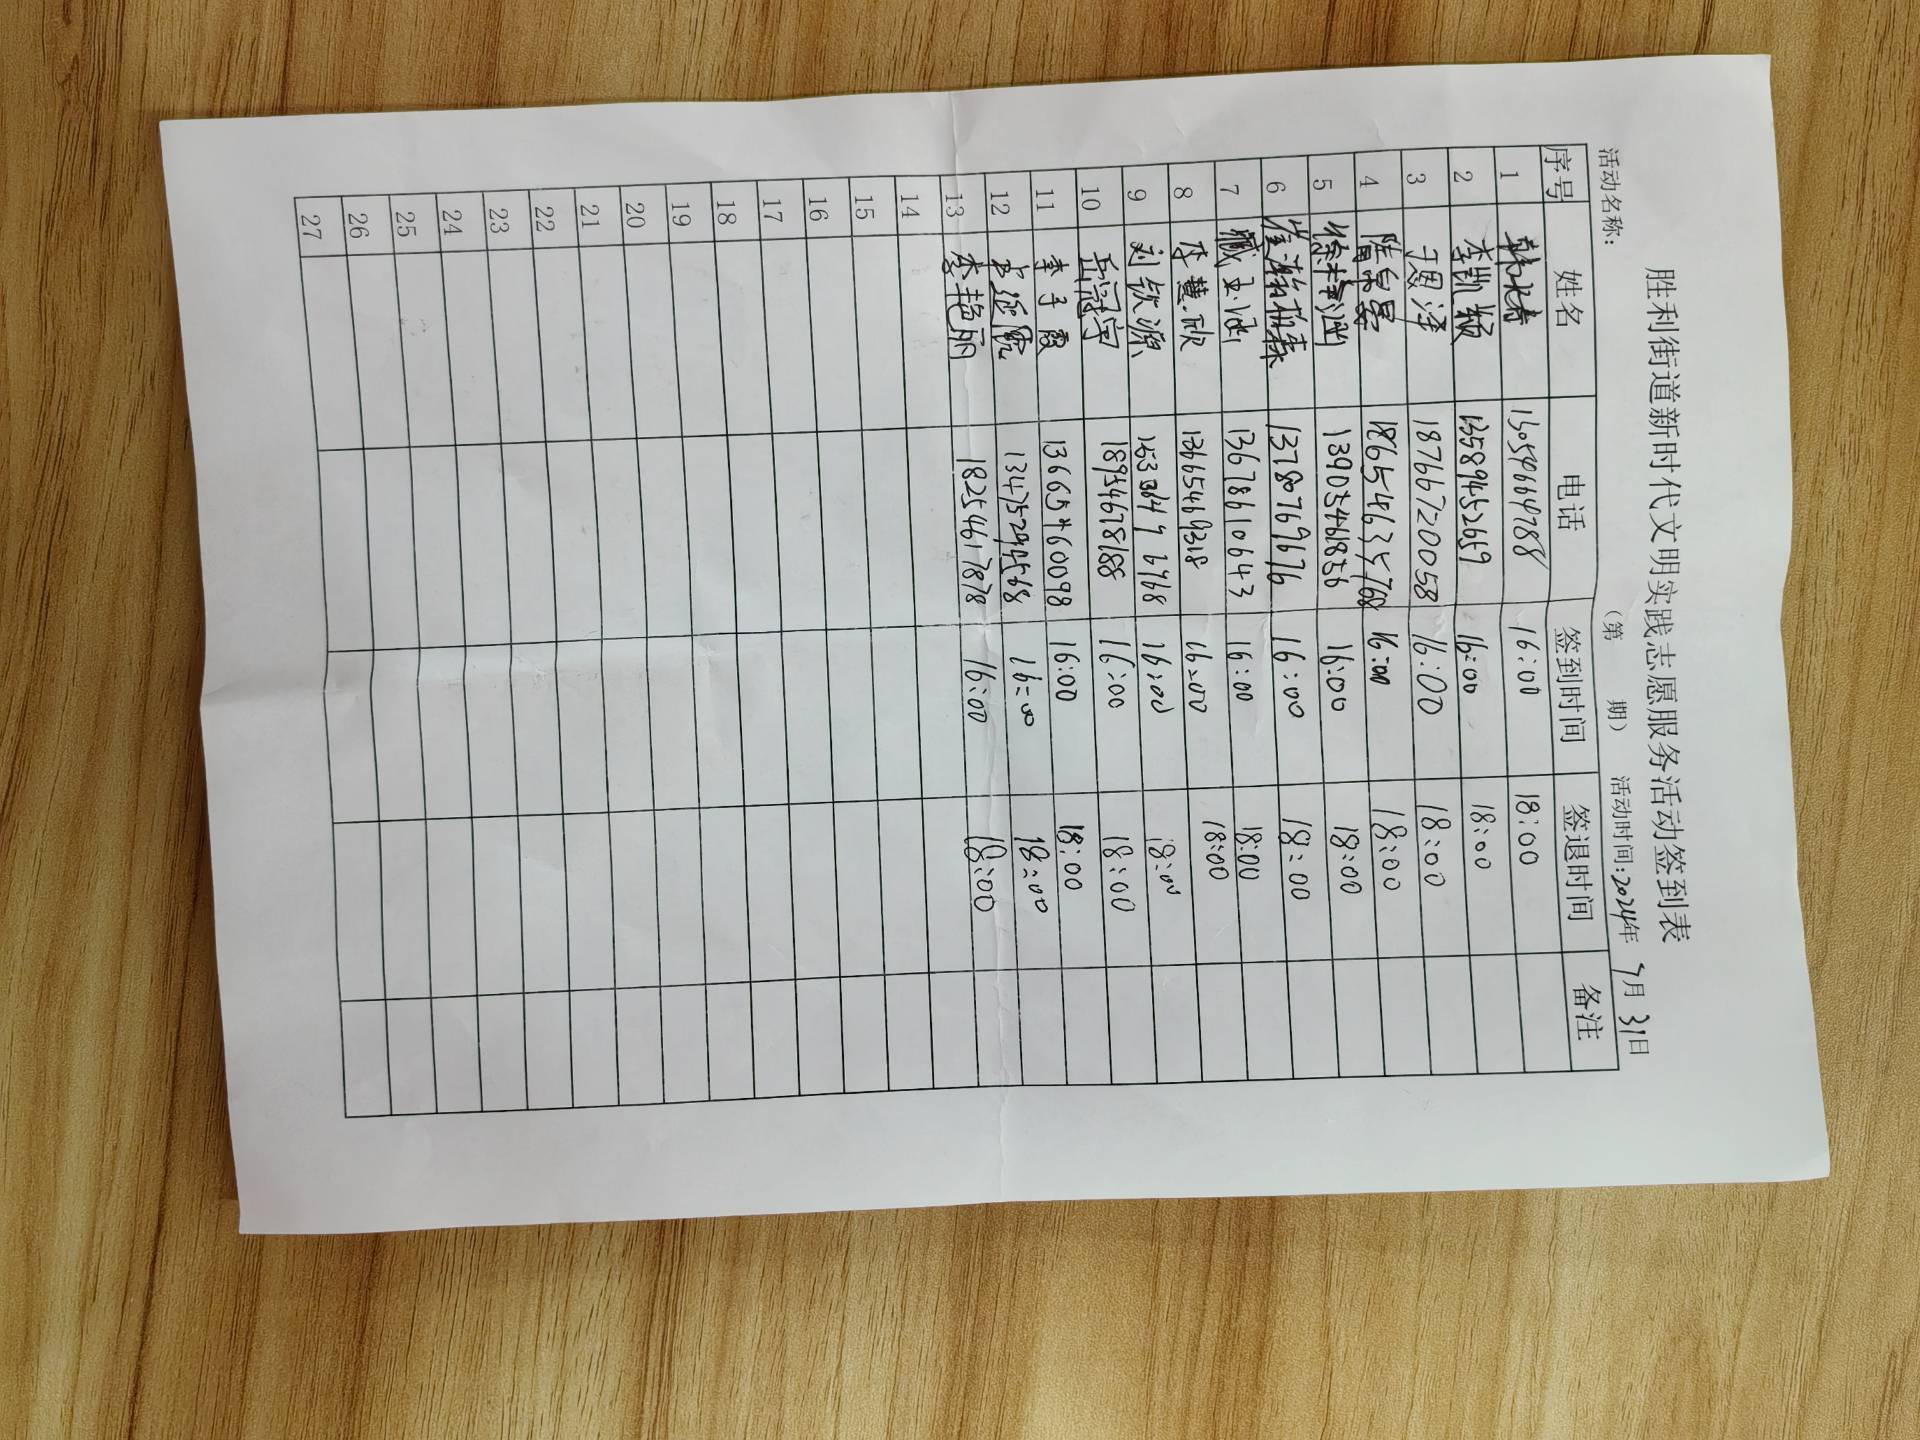 胜利街道新时代文明实践志愿服务活动签到表
（第 期）
活动名称： 活动时间:2024年 7月 31日
序号 姓名 电话 签到时间 签退时间 备注
1 16:00 18:00
2 李凯颖 13589452659 16:00 18:00
3 于恩泽 18766720058 16:00 18:00
4 16:00 18:00
5 13905461836 16:00 18:00
6 13780769676 16:00 18:00
7 臧玉洁 13678610643 16:00 18:00
8 慧欣 13665469318 16:00 18:00
9 刘钦源 16:00 18:00
10 岳冠宇 18954678188 16:00 18:00
11 李子霞 13665460098 16:00 18:00
12 13475294568 16:00 18:00
13 李艳丽 18254617878 16:00 18:00
14
15
16
17
18
19
20
21
22
23
24
25
26
27